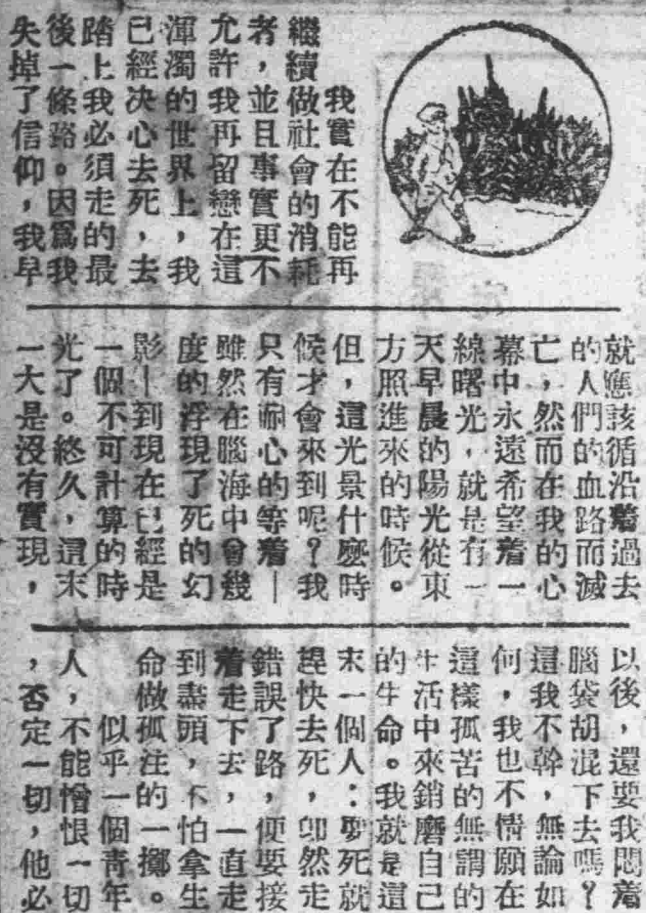 我實在不能再
繼續做社會的消耗
者，並且事實更不
允許我再留戀在這
渾濁的世界上，我
已經决心去死，去
踏上我必須走的最
後一條路。因爲我
失掉了信仰，我早
就應該循沿着過去
的人們的血路而滅
亡，然而在我的心
幕中永遠希望着一
線曙光，就是有一
天早晨的陽光從東
方照進來的時候。
但，這光景什麼時
候才會來到呢？我
只有耐心的等着—
雖然在腦海中曾幾
度的浮現了死的幻
影—到現在已經是
一個不可計算的時
光了。終久，這末
一大是沒有實現，
以後，還要我悶着
腦袋胡混下去嗎？
這我不幹，無論如
何，我也不情願在
這樣孤苦的無謂的
生活中來銷磨自己
的生命。我就是這
末一個人：要死就
趕快去死，卽然走
錯誤了路，便要接
着走下去，一直走
到盡頭，不怕拿生
命做孤注的一擲。
似乎一個青年
人，不能憎恨一切
，否定一切，他必